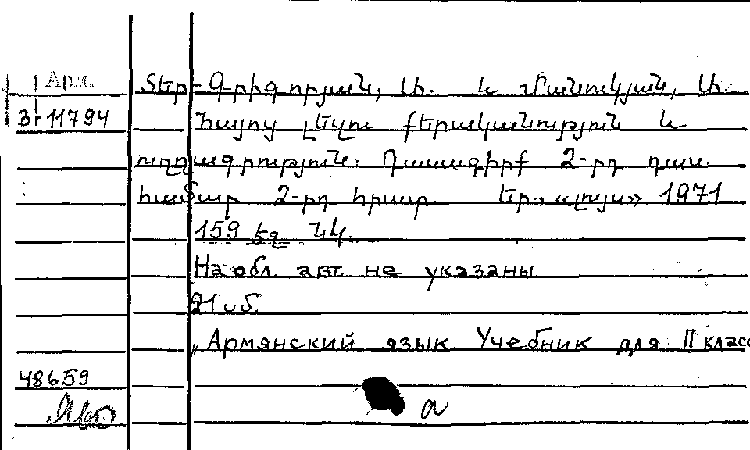 Арм. Տեր-Գրիգորյան, Ա. և Մանուկյան, Ա.
3-11794 Հայոց լեզու քերականություն և
ուղղագրություն. Դասագիրք 2-րդ դաս.
համար 2-րդ հրատ. Եր. «Լույս» 1971
159 էջ նկ.
На обл. авт. не указаны
21 սմ.
„Армянский язык Учебник для II класс
48659
а